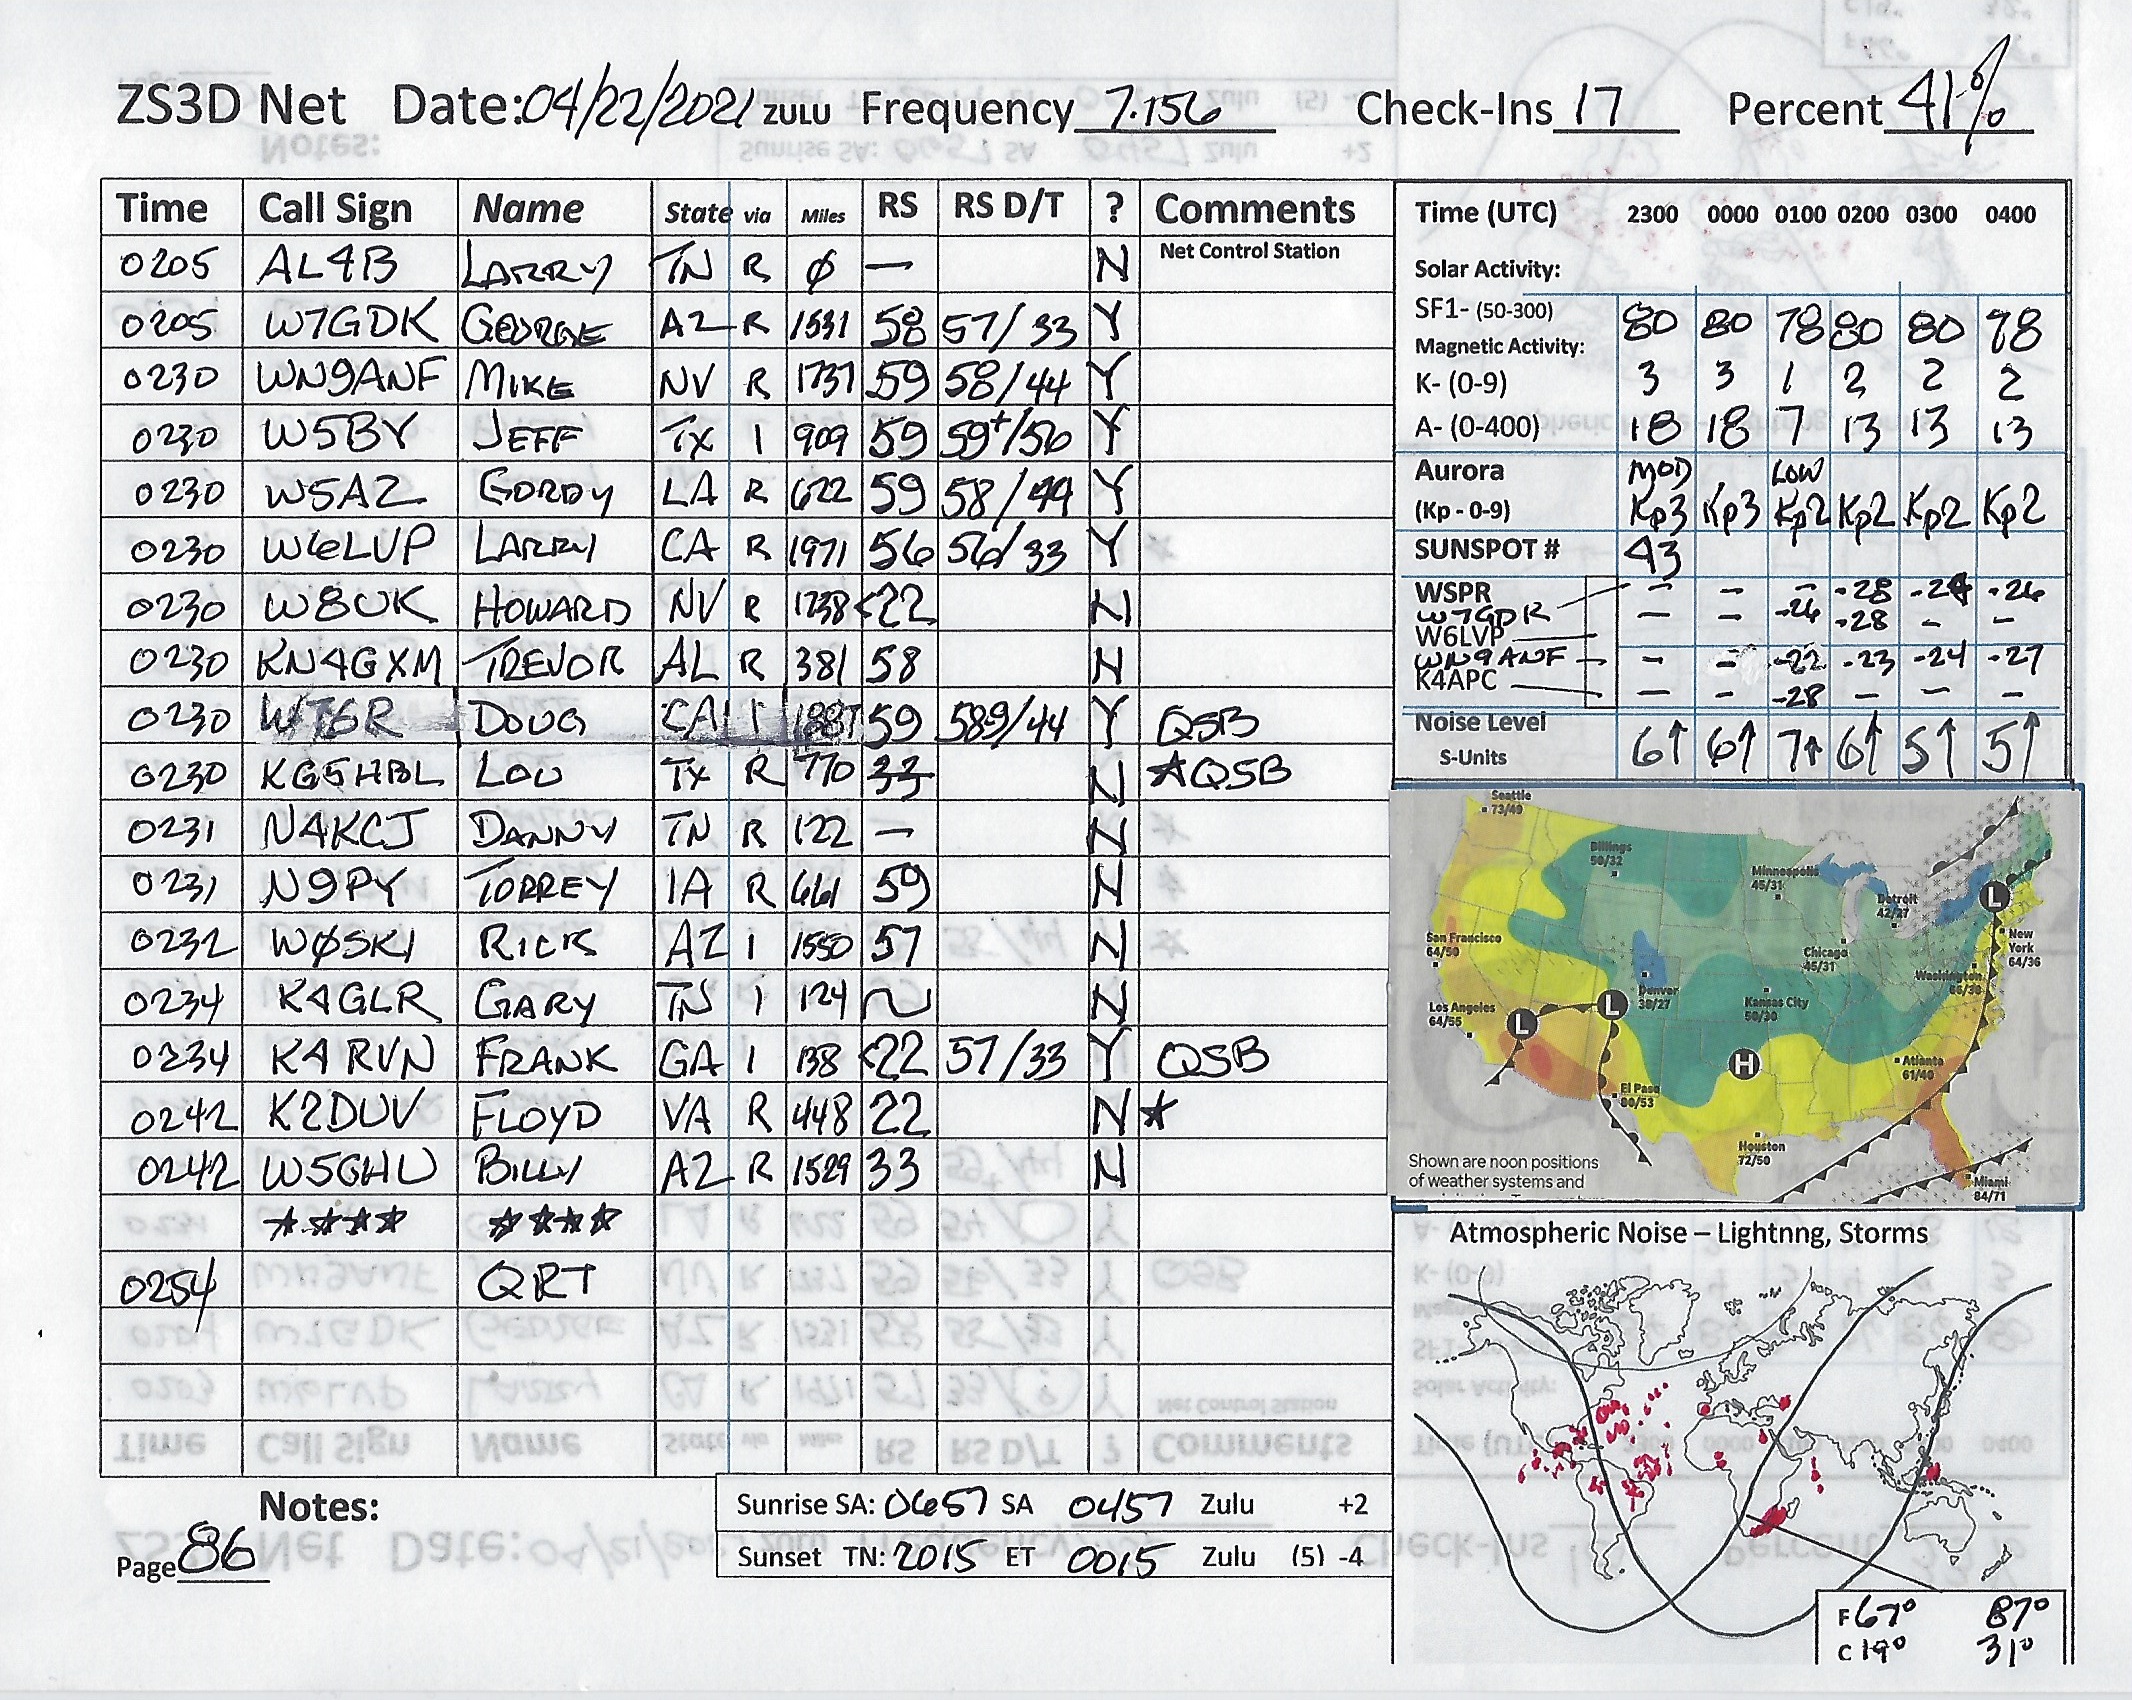 ZS3D Net Date: 04/22/2021 ZULU Frequency 7.156 Check-Ins 17 Percent 41%
Time Call Sign Name State via Miles RS RS D/T ? Comments
0205 AL4B LARRY TN R Ø — N Net Control Station
0205 W7GDK GEORGE AZ R 1531 58 57/33 Y
0230 WN9ANF MIKE NV R 1737 59 58/44 Y
0230 W5BY JEFF TX I 909 59 59+/56 Y
0230 W5AZ GORDY LA R 622 59 58/44 Y
0230 W6LVP LARRY CA R 1971 56 56/33 Y
0230 W8UK HOWARD NV R 1738 <22 N
0230 KN4GXM TREVOR AL R 381 58 N
0230 WT6R DOUG CA I 1887 59 589/44 Y QSB
0230 KG5HBL LOU TX R 770 33 N ★QSB
0231 N4KCJ DANNY TN R 122 — N
0231 N9PY TORREY IA R 661 59 N
0232 WØSKI RICK AZ I 1550 57 N
0234 K4GLR GARY TN I 124 ~ N
0234 K4RVN FRANK GA I 138 <22 57/33 Y QSB
0242 K2DUV FLOYD VA R 448 22 N ★
0242 W5GHU BILLY AZ R 1529 33 N
★★★★ ★★★★
0254 QRT
Notes:
Page 86
Sunrise SA: 0657 SA 0457 Zulu +2
Sunset TN: 2015 ET 0015 Zulu (5) -4
Time (UTC) 2300 0000 0100 0200 0300 0400
Solar Activity:
SF1- (50-300) 80 80 78 80 80 78
Magnetic Activity:
K- (0-9) 3 3 1 2 2 2
A- (0-400) 18 18 7 13 13 13
Aurora MOD LOW
(Kp - 0-9) Kp3 Kp3 Kp2 Kp2 Kp2 Kp2
SUNSPOT # 43
WSPR – – – -28 -24 -26
W7GDR – – -26 -28 – –
W6LVP
WN9ANF – – -22 -23 -24 -27
K4APC – – -28 – – –
Noise Level
S-Units 6↑ 6↑ 7↑ 6↑ 5↑ 5↑
Seattle
73/49
Billings
50/32
Minneapolis
45/31
Detroit
42/27
San Francisco
64/50
New
York
64/36
Chicago
45/31
Washington
Denver
39/27
Kansas City
50/30
Los Angeles
64/55
L
L
L
H
Atlanta
61/40
El Paso
80/53
Houston
72/50
Miami
84/71
Shown are noon positions
of weather systems and
Atmospheric Noise – Lightnng, Storms
F 67° 87°
C 19° 31°